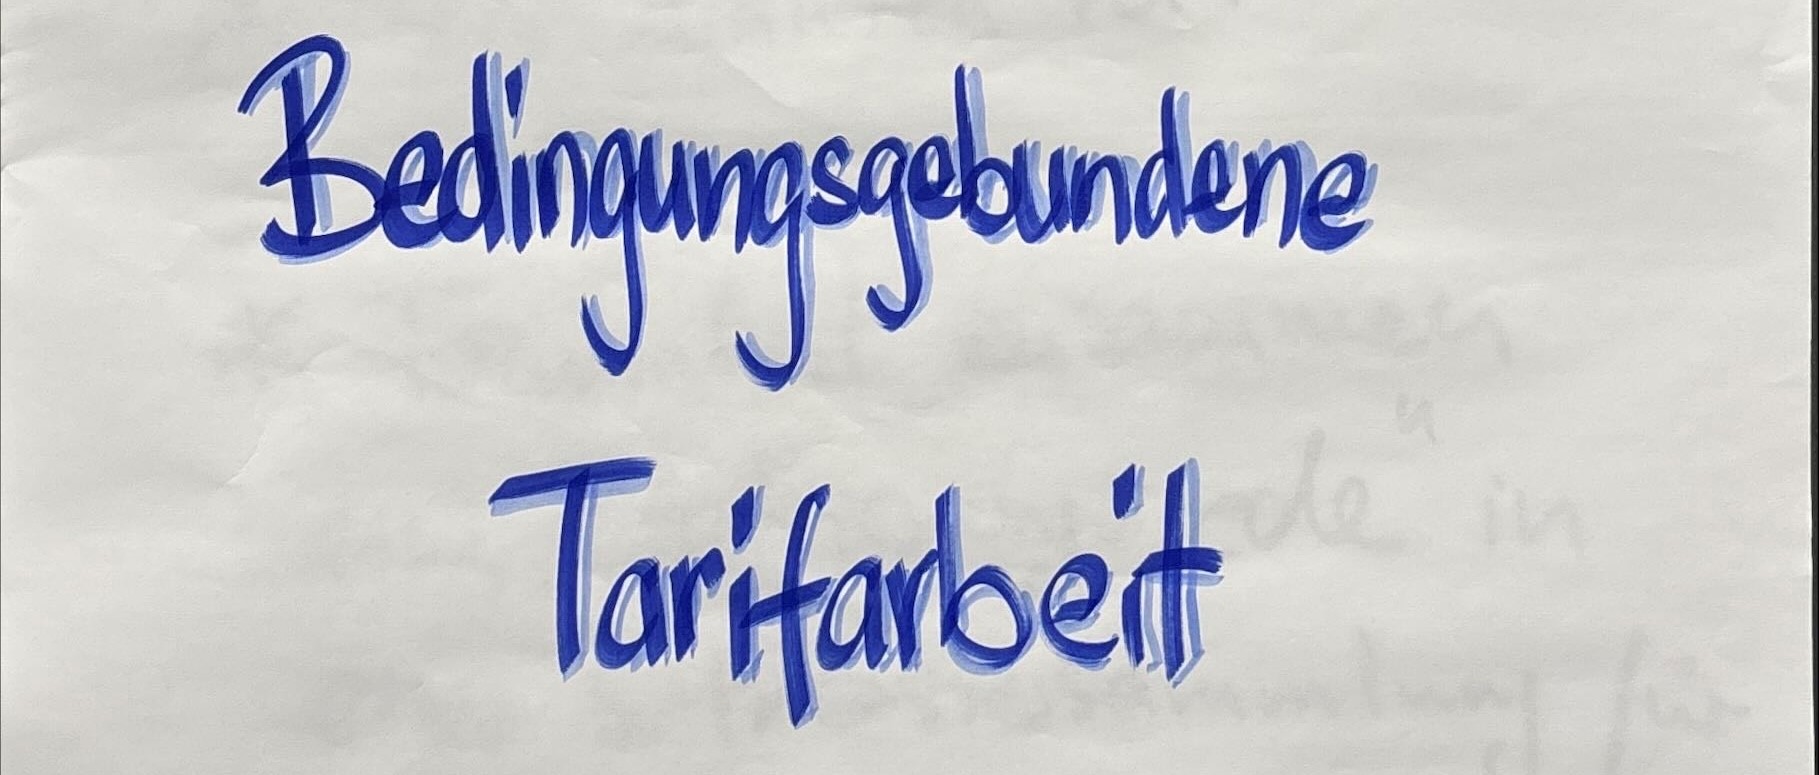 Bedingungsgebundene
Tarifarbeit